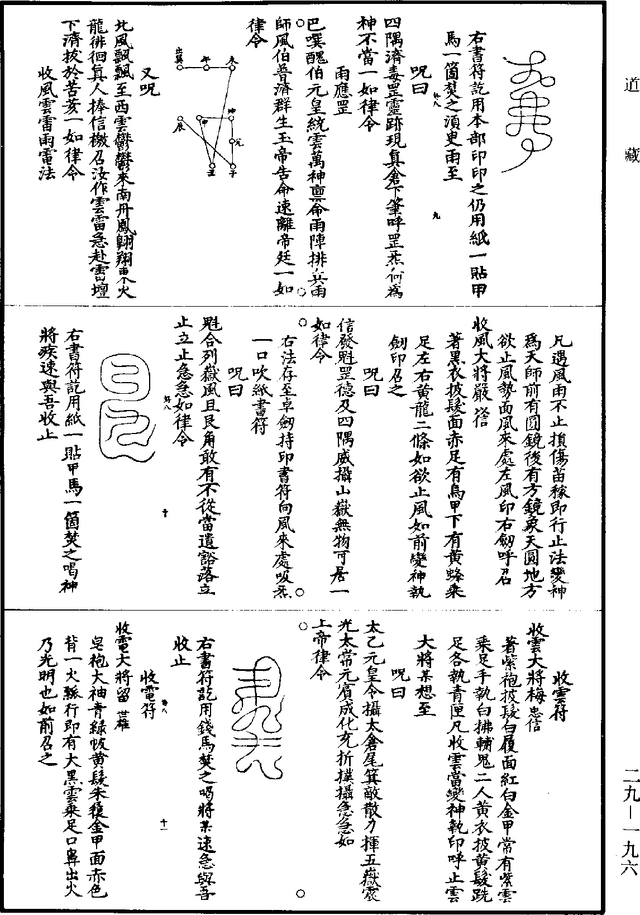 道藏
右書符訖用本部印印之仍用紙一貼甲
馬一箇焚之須臾雨至
呪曰
四隅濟毒罡靈跡現真倉下筆呼罡炁何為
神不當一如律令
雨應罡
巴噀醜伯元皇統雲萬神禀命雨陣排兵雨
師風伯普濟群生玉帝告命速離帝廷一如
律令
又呪
北風飄飄至西雲鬱鬱來南丹鳳翱翔東火
龍徘徊真人捧信檄召汝作雲雷急赴雷壇
下濟拔於苦亥一如律令
收風雲雷雨電法
凡遇風雨不止損傷苗稼即行止法變神
為天師前有圓鏡後有方鏡象天圓地方
欲止風勢面風來處左風印右劍呼召
收風大將嚴
著黑衣披髮面赤足有烏甲下有黃蜂乘
足左右黃龍二條如欲止風如前變神執
劍印召之
呪曰
信發魁罡德及四隅威攝山嶽無物可居一
如律令
右法存至卓劍持印書符向風來處吸炁
一口吹紙書符
呪曰
魁合列嶽風且艮角敢有不從當遣豁落立
止立止急急如律令
右書符訖用紙一貼甲馬一箇焚之喝神
將疾速與吾收止
收雲符
收雲大將梅忠信
著紫袍披髮白履面紅白金甲常有紫雲
乘足手執白拂輔鬼二人黃衣披黃髮跣
足各執青匣凡收雲當變神執印呼止雲
大將某想至
呪曰
太乙元皇令攝太倉尾箕敵散刀揮五嶽震
光太常元賓成化充折撲攝急急如
上帝律令
右書符訖用錢馬焚之喝將某速急與吾
收止
收電符
收電大將留
皂袍大袖青綠帔黃髮朱履金甲面赤色
背一火輪行即有大黑雲乘足口鼻出火
乃光明也如前召之
二九—一九六